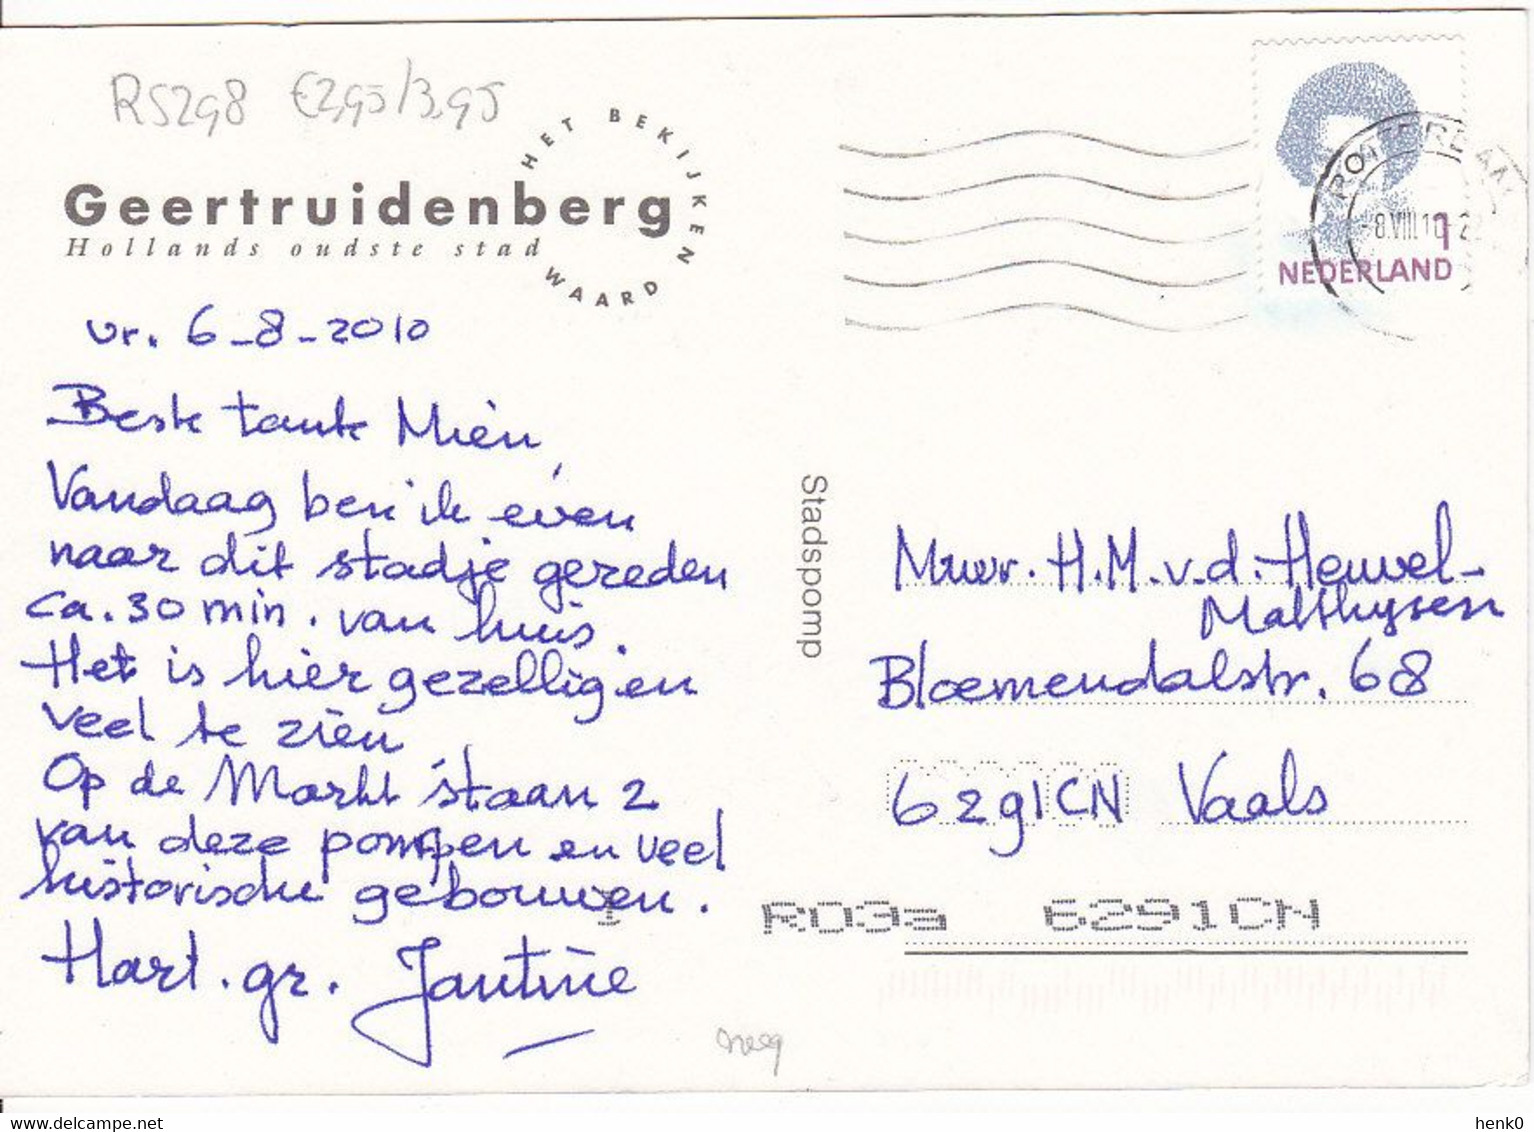 RS298 €2,95/3,95
HET BEKIJKEN WAARD
Geertruidenberg
Hollands oudste stad
vr. 6-8-2010
Beste tante Mien,
Vandaag ben ik even
naar dit stadje gereden
ca. 30 min. van huis.
Het is hier gezellig en
veel te zien
Op de Markt staan 2
van deze pompen en veel
historische gebouwen.
Hart. gr. Jantine
Stadspomp
ROTTERDAM
-8.VIII.10-22
1
NEDERLAND
Mwvr. H.M.v.d. Heuvel-
Malthysen
Bloemendalstr. 68
6291CN Vaals
RD3a 6291CN
www.delcampe.net
henk0